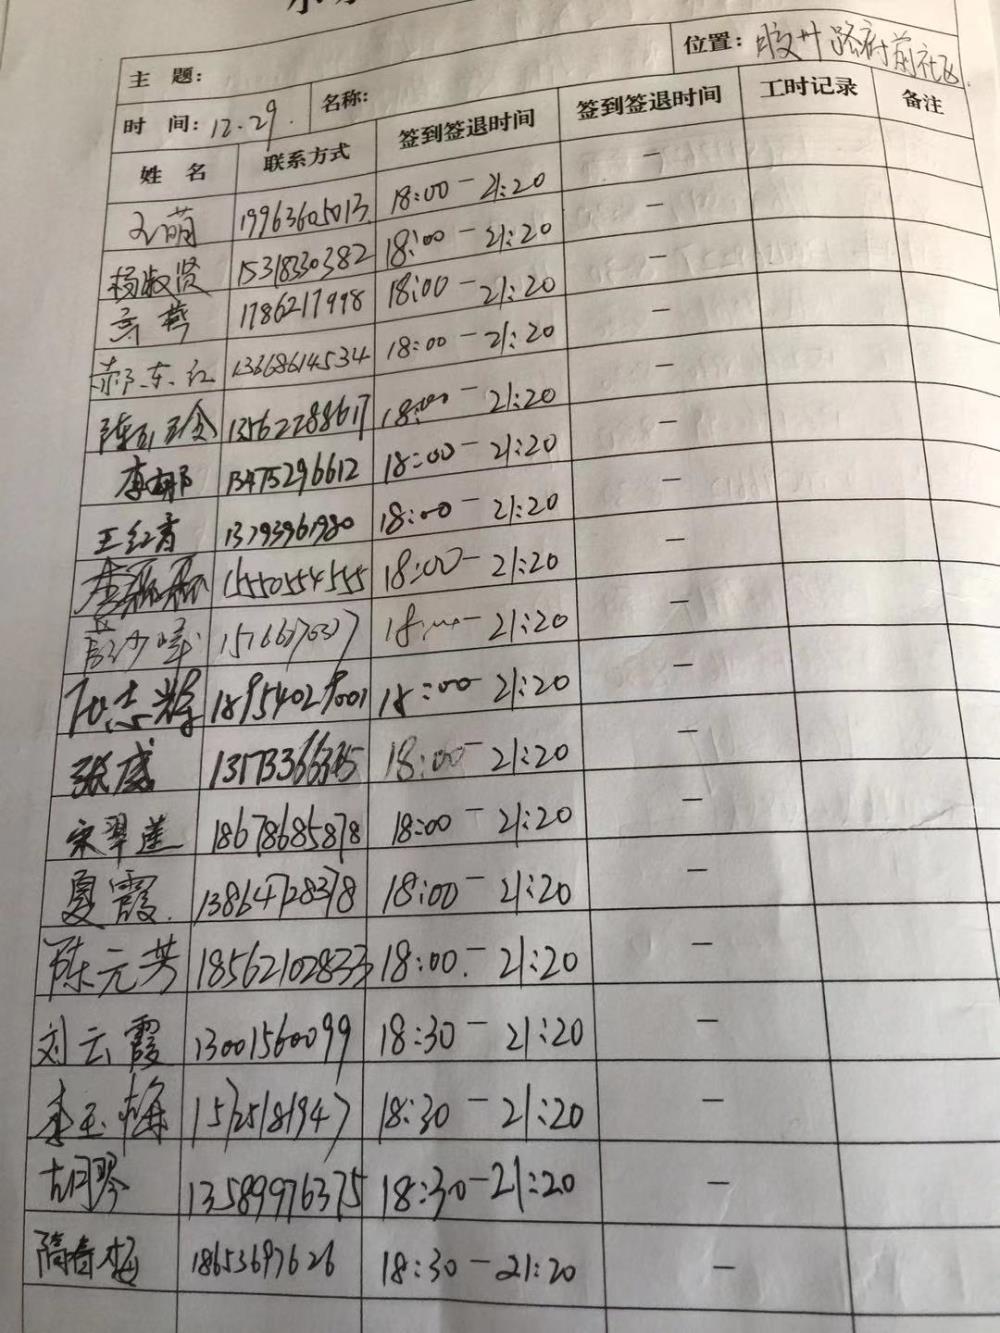 主 题：
位置：胶州路府前社区
时 间：12.29.
名称：
姓 名 联系方式 签到签退时间 签到签退时间 工时记录 备注
孙萌 19963605013 18:00-21:20 -
杨淑贤 15318330382 18:00-21:20 -
高 燕 1786217998 18:00-21:20 -
郝东红 13668614534 18:00-21:20 -
陈玉金 13562288617 18:00-21:20 -
李娜 13475296612 18:00-21:20 -
王红青 13793961980 18:00-21:20 -
李 15550554555 18:00-21:20 -
15166170377 18:00-21:20 -
志辉 18954029001 18:00-21:20 -
张盛 18:00-21:20 -
宋翠莲 18678685878 18:00-21:20 -
夏霞. 13864728378 18:00-21:20 -
陈元芳 18562102833 18:00.-21:20 -
刘云霞 13001560099 18:30-21:20 -
李玉梅 18:30-21:20 -
胡琴 13589976375 18:30-21:20 -
隋春梅 18653697626 18:30-21:20 -